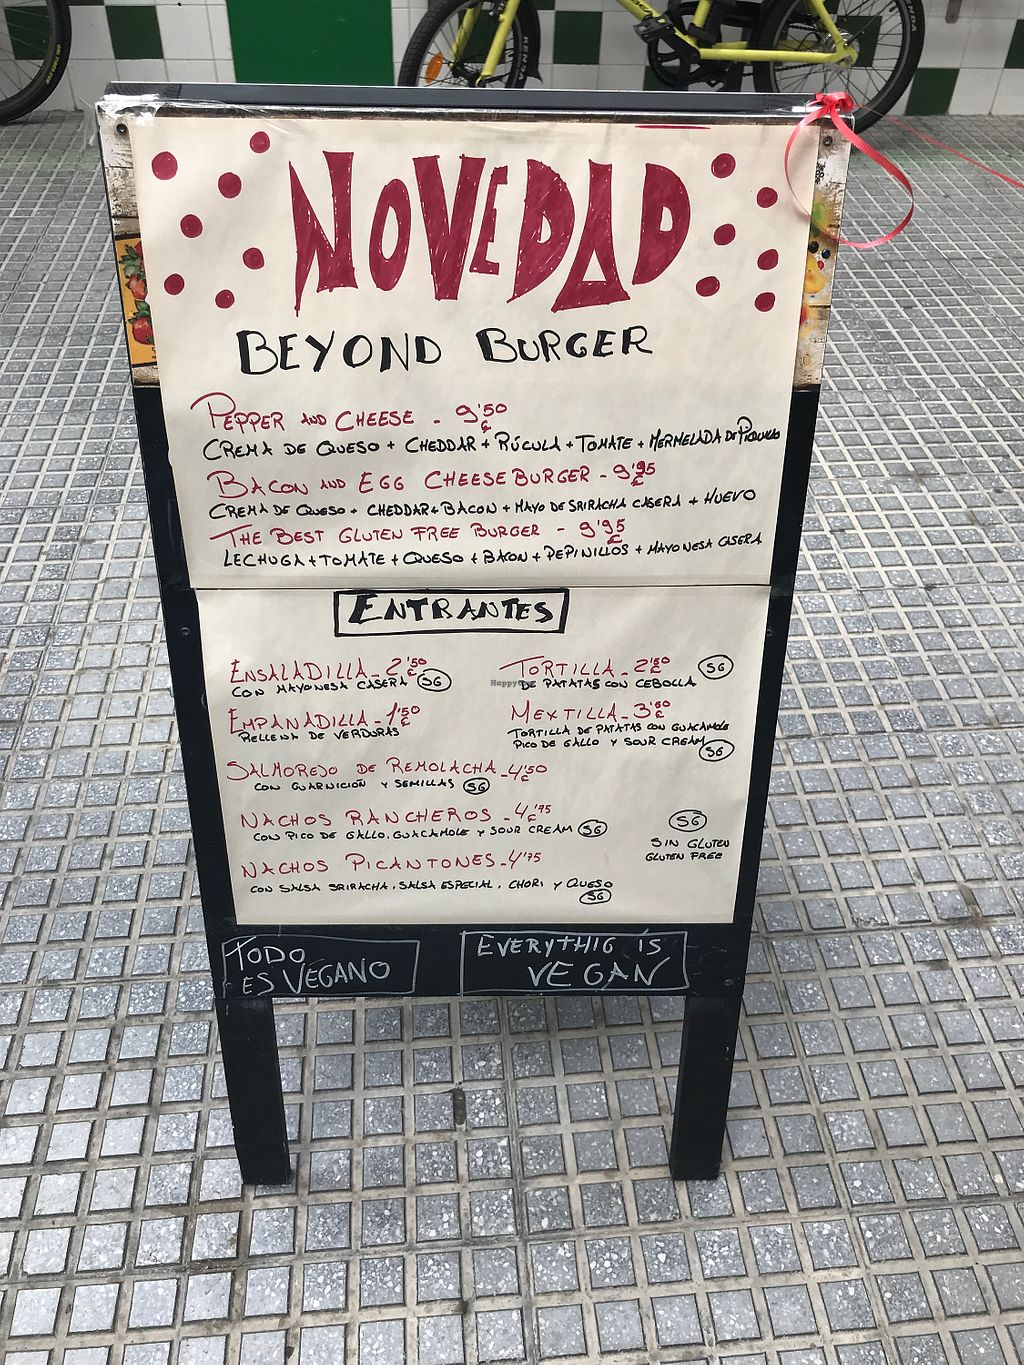 NOVEDAD
BEYOND BURGER
PEPPER AND CHEESE - 9'50 €
CREMA DE QUESO + CHEDDAR + RÚCULA + TOMATE + MERMELADA DE PIQUILLO
BACON AND EGG CHEESEBURGER - 9'95 €
CREMA DE QUESO + CHEDDAR + BACON + MAYO DE SRIRACHA CASERA + HUEVO
THE BEST GLUTEN FREE BURGER - 9'95 €
LECHUGA + TOMATE + QUESO + BACON + PEPINILLOS + MAYONESA CASERA
ENTRANTES
ENSALADILLA - 2'50 €
CON MAYONESA CASERA SG
EMPANADILLA - 1'50 €
RELLENA DE VERDURAS
TORTILLA - 2'50 € SG
DE PATATAS CON CEBOLLA
MEXTILLA - 3'50 €
TORTILLA DE PATATAS CON GUACAMOLE
PICO DE GALLO Y SOUR CREAM SG
SALMOREJO DE REMOLACHA - 4'50 €
CON GUARNICIÓN Y SEMILLAS SG
NACHOS RANCHEROS - 4'75 €
CON PICO DE GALLO, GUACAMOLE Y SOUR CREAM SG
NACHOS PICANTONES - 4'75
CON SALSA SRIRACHA, SALSA ESPECIAL, CHORI Y QUESO
SG
SG
SIN GLUTEN
GLUTEN FREE
TODO
ES VEGANO
EVERYTHIG IS
VEGAN
KENDA